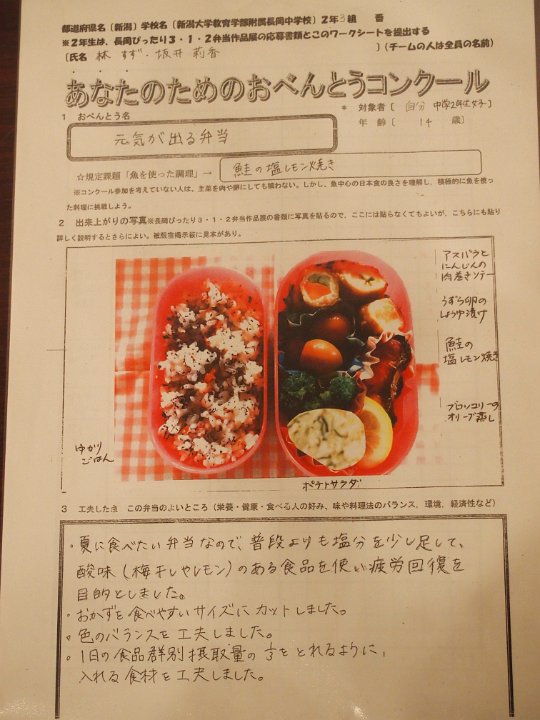 都道府県名（新潟）学校名（新潟大学教育学部附属長岡中学校）２年３組　　番
※２年生は、長岡ぴったり３・１・２弁当作品展の応募書類とこのワークシートを提出する
（氏名　林 すず・坂井 莉香　　）（チームの人は全員の名前）
あなたのためのおべんとうコンクール
1　おべんとう名
＊　対象者〔　自分　中学2年生女子〕
年　齢〔　14　歳〕
元気が出る弁当
☆規定課題「魚を使った調理」→　鮭の塩レモン焼き
※コンクール参加を考えていない人は、主菜を肉や卵にしても構わない。しかし、魚中心の日本食の良さを理解し、積極的に魚を使った料理に挑戦しよう。
2　出来上がりの写真※長岡ぴったり３・１・２弁当作品展の書類に写真を貼るので、ここには貼らなくてもよいが、こちらにも貼り
詳しく説明するとさらによい。被服室掲示板に見本があり。
アスパラと
にんじんの
肉巻きソテー
うずら卵の
しょうゆ漬け
鮭の
塩レモン焼き
ブロッコリーの
オリーブ蒸し
ゆかり
ごはん
ポテトサラダ
3　工夫した点　この弁当のよいところ（栄養・健康・食べる人の好み、味や料理法のバランス，環境，経済性など）
・夏に食べたい弁当なので、普段よりも塩分を少し足して、
酸味（梅干しやレモン）のある食品を使い疲労回復を
目的としました。
・おかずを食べやすいサイズにカットしました。
・色のバランスを工夫しました。
・1日の食品群別摂取量の⅓をとれるように、
入れる食材を工夫しました。